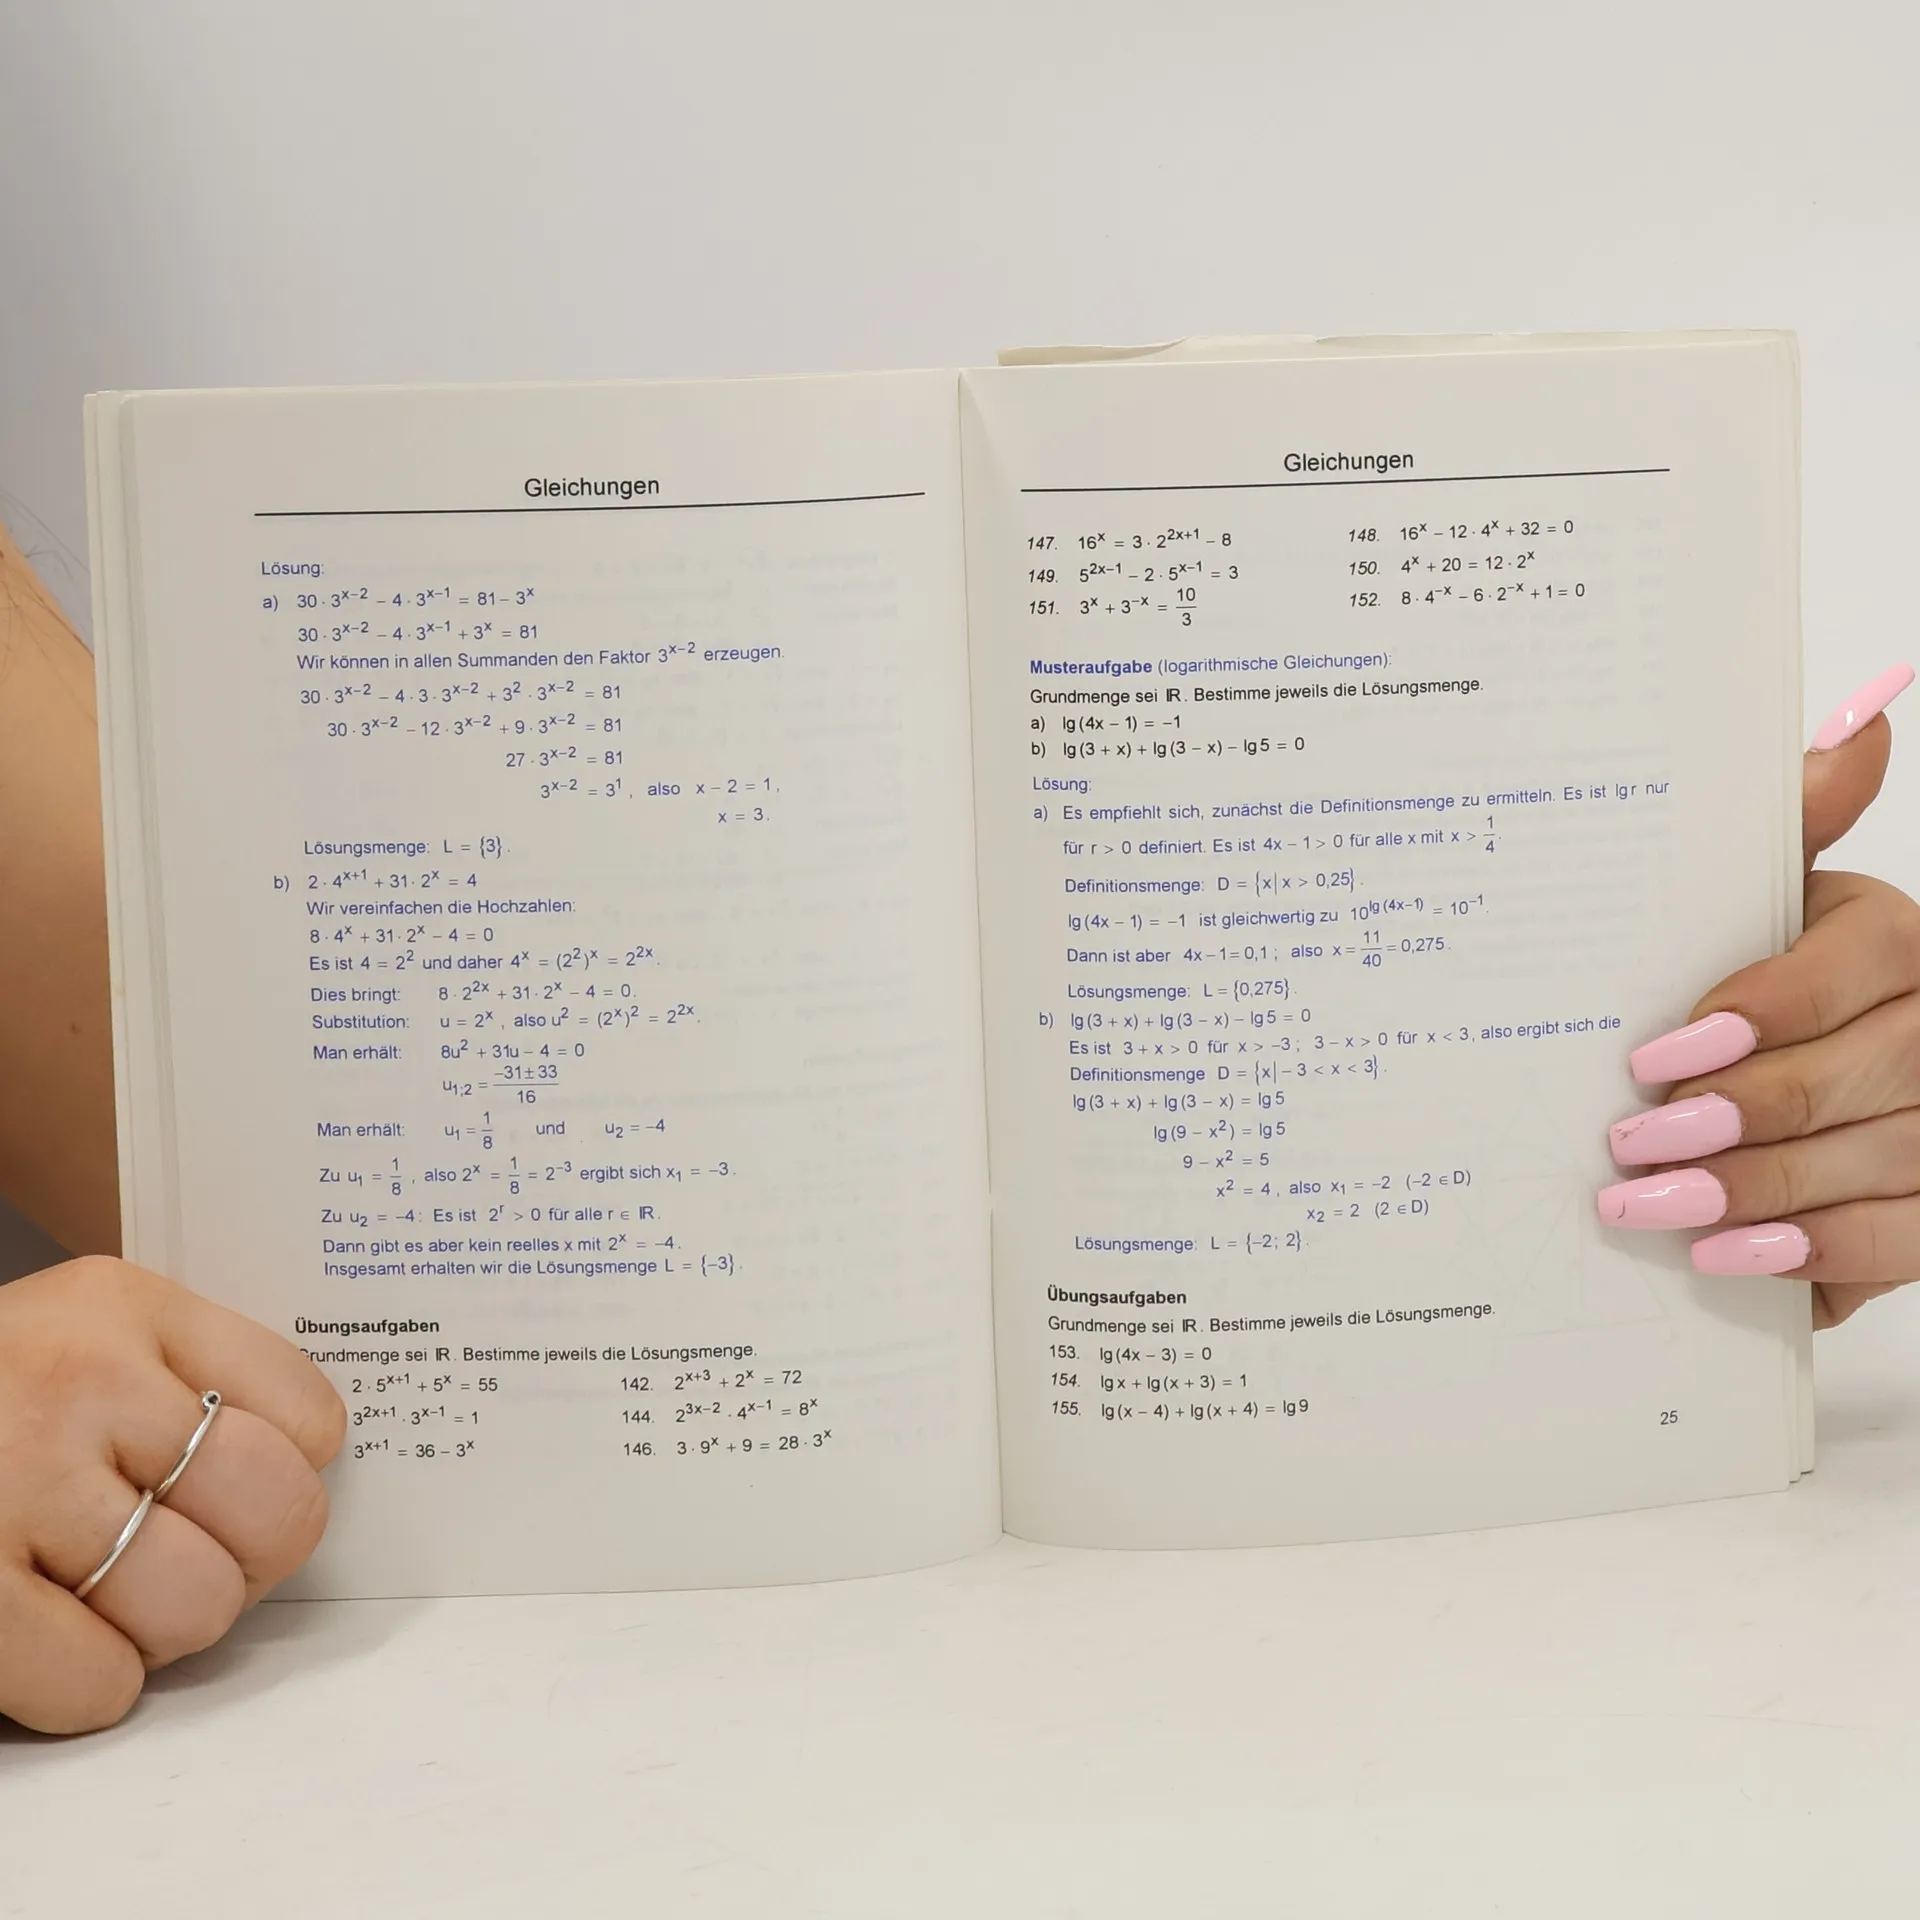 Gleichungen
Lösung:
a) 30 · 3^(x−2) − 4 · 3^(x−1) = 81 − 3^x
30 · 3^(x−2) − 4 · 3^(x−1) + 3^x = 81
Wir können in allen Summanden den Faktor 3^(x−2) erzeugen.
30 · 3^(x−2) − 4 · 3 · 3^(x−2) + 3² · 3^(x−2) = 81
30 · 3^(x−2) − 12 · 3^(x−2) + 9 · 3^(x−2) = 81
27 · 3^(x−2) = 81
3^(x−2) = 3¹, also x − 2 = 1,
x = 3.
Lösungsmenge: L = {3}.
b) 2 · 4^(x+1) + 31 · 2^x = 4
Wir vereinfachen die Hochzahlen:
8 · 4^x + 31 · 2^x − 4 = 0
Es ist 4 = 2² und daher 4^x = (2²)^x = 2^(2x).
Dies bringt: 8 · 2^(2x) + 31 · 2^x − 4 = 0.
Substitution: u = 2^x, also u² = (2^x)² = 2^(2x).
Man erhält: 8u² + 31u − 4 = 0
u₁;₂ = (−31 ± 33)/16
Man erhält: u₁ = 1/8 und u₂ = −4
Zu u₁ = 1/8, also 2^x = 1/8 = 2^(−3) ergibt sich x₁ = −3.
Zu u₂ = −4: Es ist 2^r > 0 für alle r ∈ ℝ.
Dann gibt es aber kein reelles x mit 2^x = −4.
Insgesamt erhalten wir die Lösungsmenge L = {−3}.
Übungsaufgaben
Grundmenge sei ℝ. Bestimme jeweils die Lösungsmenge.
2 · 5^(x+1) + 5^x = 55 142. 2^(x+3) + 2^x = 72
3^(2x+1) · 3^(x−1) = 1 144. 2^(3x−2) · 4^(x−1) = 8^x
3^(x+1) = 36 − 3^x 146. 3 · 9^x + 9 = 28 · 3^x
Gleichungen
147. 16^x = 3 · 2^(2x+1) − 8 148. 16^x − 12 · 4^x + 32 = 0
149. 5^(2x−1) − 2 · 5^(x−1) = 3 150. 4^x + 20 = 12 · 2^x
151. 3^x + 3^(−x) = 10/3 152. 8 · 4^(−x) − 6 · 2^(−x) + 1 = 0
Musteraufgabe (logarithmische Gleichungen):
Grundmenge sei ℝ. Bestimme jeweils die Lösungsmenge.
a) lg (4x − 1) = −1
b) lg (3 + x) + lg (3 − x) − lg 5 = 0
Lösung:
a) Es empfiehlt sich, zunächst die Definitionsmenge zu ermitteln. Es ist lg r nur
für r > 0 definiert. Es ist 4x − 1 > 0 für alle x mit x > 1/4.
Definitionsmenge: D = {x | x > 0,25}.
lg (4x − 1) = −1 ist gleichwertig zu 10^(lg (4x−1)) = 10^(−1).
Dann ist aber 4x − 1 = 0,1; also x = 11/40 = 0,275.
Lösungsmenge: L = {0,275}.
b) lg (3 + x) + lg (3 − x) − lg 5 = 0
Es ist 3 + x > 0 für x > −3; 3 − x > 0 für x < 3, also ergibt sich die
Definitionsmenge D = {x | − 3 < x < 3}.
lg (3 + x) + lg (3 − x) = lg 5
lg (9 − x²) = lg 5
9 − x² = 5
x² = 4, also x₁ = −2 (−2 ∈ D)
x₂ = 2 (2 ∈ D)
Lösungsmenge: L = {−2; 2}.
Übungsaufgaben
Grundmenge sei ℝ. Bestimme jeweils die Lösungsmenge.
153. lg (4x − 3) = 0
154. lg x + lg (x + 3) = 1
155. lg (x − 4) + lg (x + 4) = lg 9
25